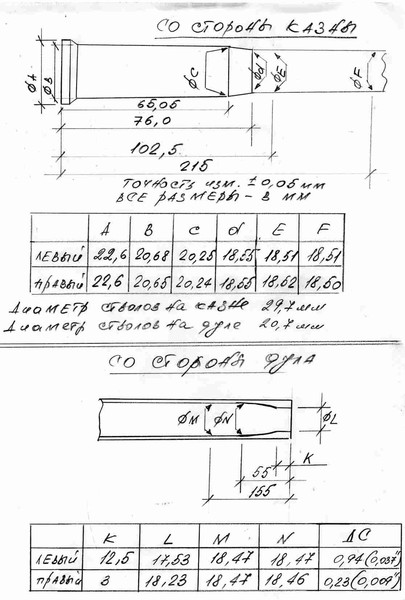 СО СТОРОНЫ КАЗНЫ
ØA
ØB
ØC
Ød
ØE
ØF
65,05
76,0
102,5
215
ТОЧНОСТЬ ИЗМ. ± 0,05 мм
ВСЕ РАЗМЕРЫ - В мм
A B C d E F
ЛЕВЫЙ 22,6 20,68 20,25 18,55 18,51 18,51
ПРАВЫЙ 22,6 20,65 20,24 18,55 18,52 18,50
ДИАМЕТР СТВОЛОВ НА КАЗНЕ 29,7 мм
ДИАМЕТР СТВОЛОВ НА ДУЛЕ 20,7 мм
СО СТОРОНЫ ДУЛА
ØM
ØN
ØL
K
55
155
K L M N ΔC
ЛЕВЫЙ 12,5 17,53 18,47 18,47 0,94 (0,037")
ПРАВЫЙ 3 18,23 18,47 18,46 0,23 (0,009")